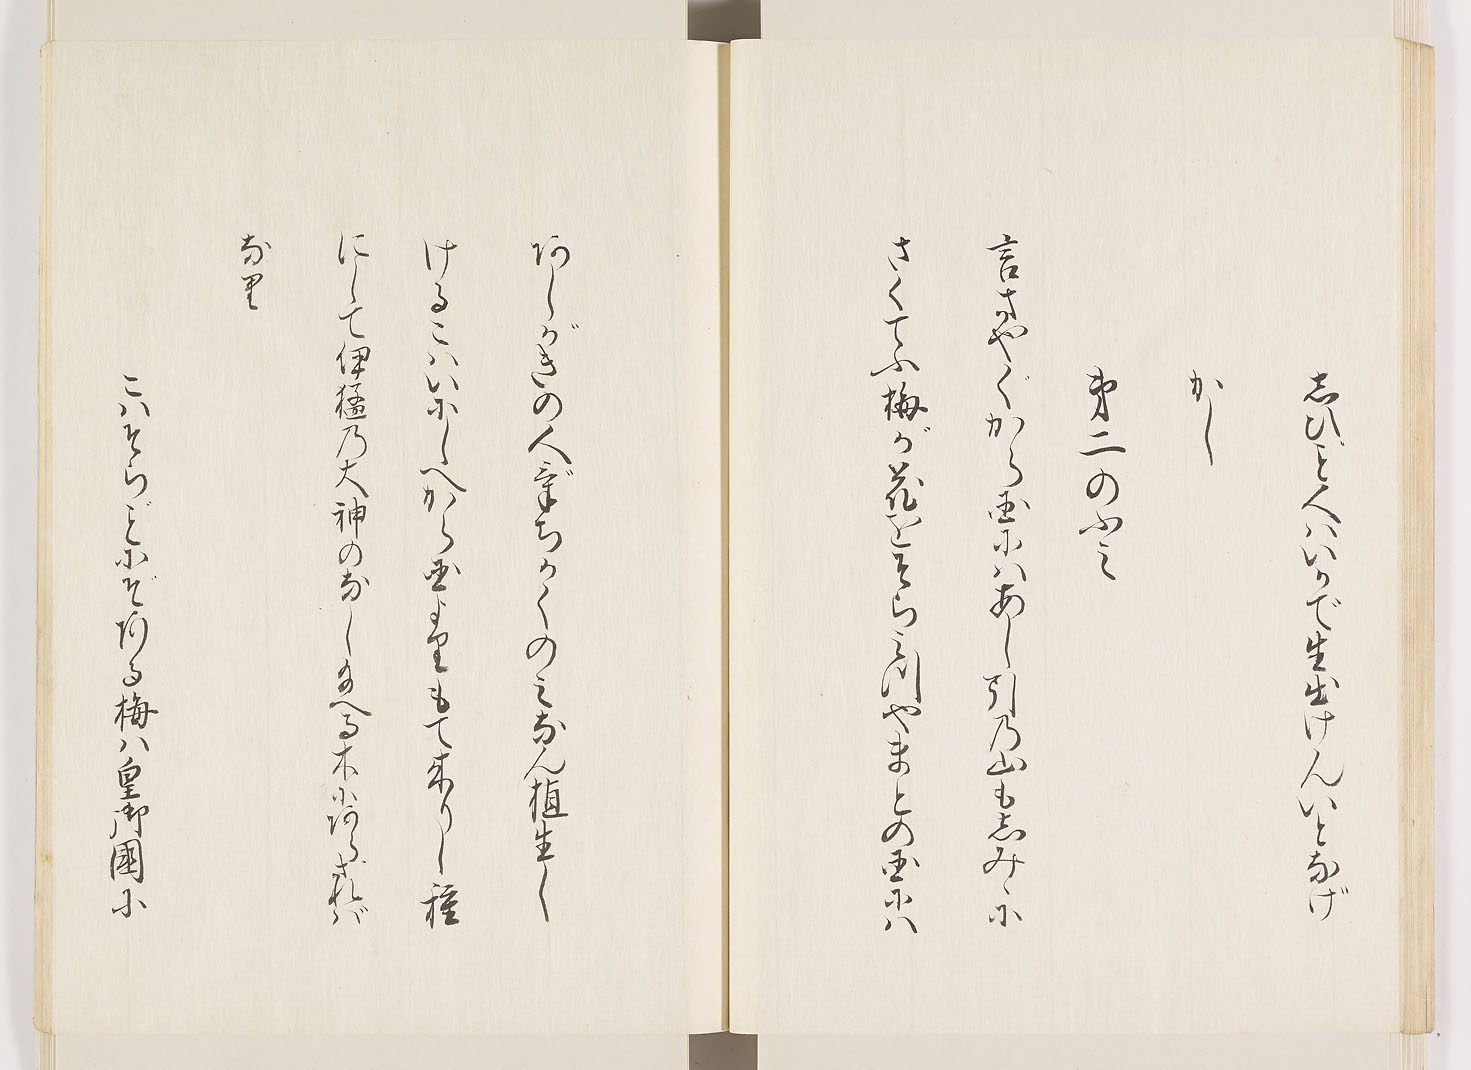 志ひごと人ハいかで生出けんいとなげ
かし
第二のふみ
言さやぐから国にハあし引乃山も志みゝに
さくてふ梅が花をそらみつやまとの国にハ
あしがきの人ざちかくのみなん植生し
けるこハいにしへから国よりもて来りし種
にして伊猛乃大神のなしたまへる木にあらざれバ
なり
こハそらごとにぞある梅ハ皇御國に